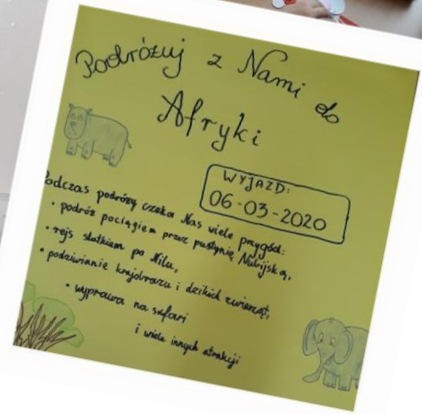 Podróżuj z Nami do
Afryki
WYJAZD:
06-03-2020
Podczas podróży czeka Nas wiele przygód:
• podróż pociągiem przez pustynię Nubijską,
• rejs statkiem po Nilu,
• podziwianie krajobrazu i dzikich zwierząt,
• wyprawa na safari
i wiele innych atrakcji